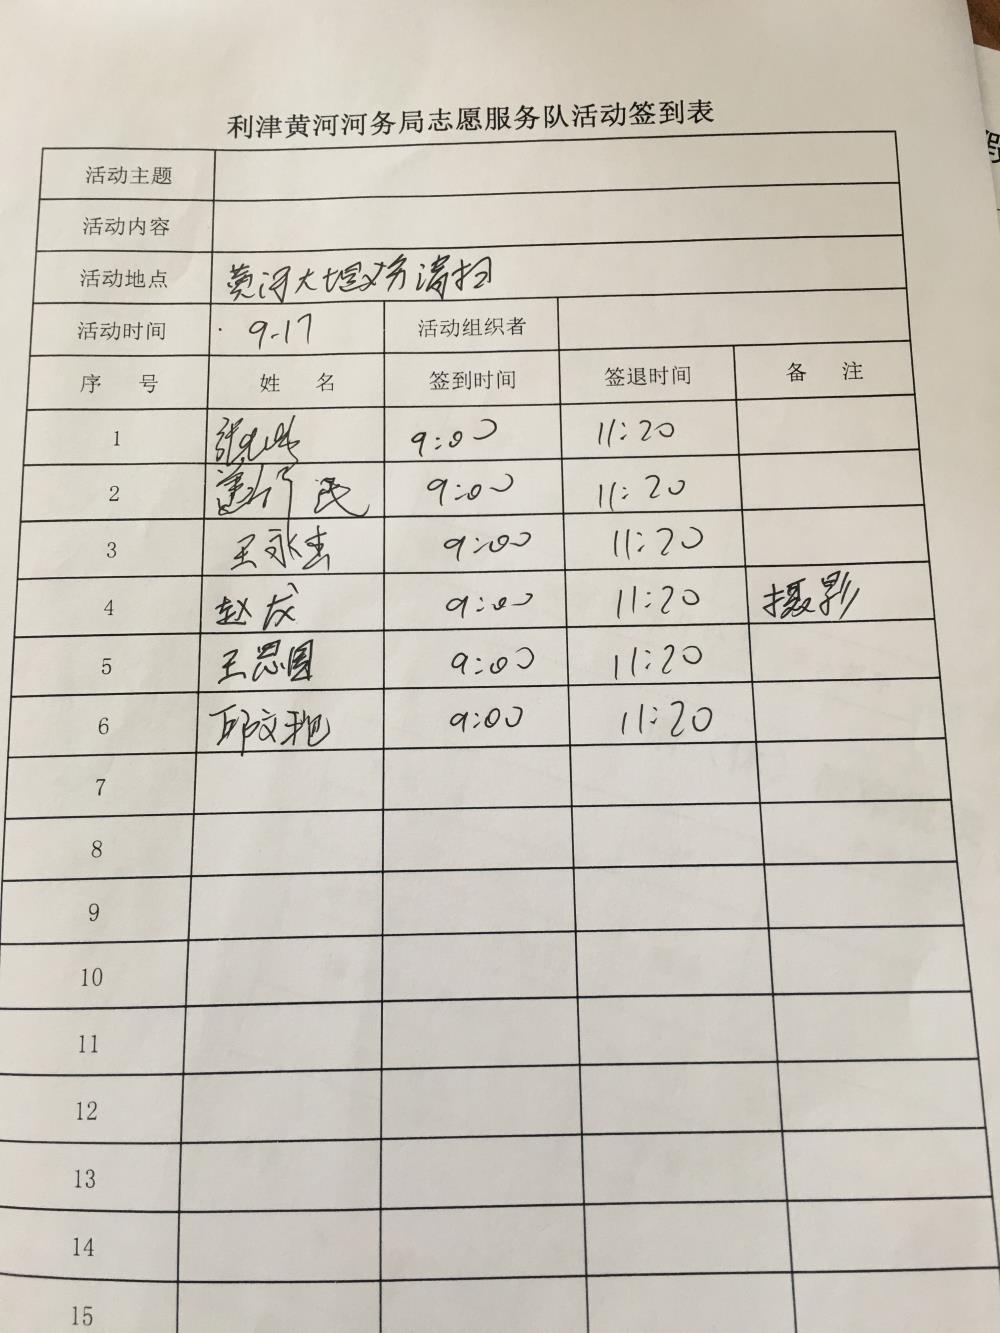 利津黄河河务局志愿服务队活动签到表
活动主题
活动内容
活动地点 黄河大堤义务清扫
活动时间 9-17 活动组织者
序 号 姓 名 签到时间 签退时间 备 注
1 9:00 11:20
2 9:00 11:20
3 王永吉 9:00 11:20
4 赵龙 9:00 11:20 摄影
5 王思圆 9:00 11:20
6 邱文艳 9:00 11:20
7
8
9
10
11
12
13
14
15